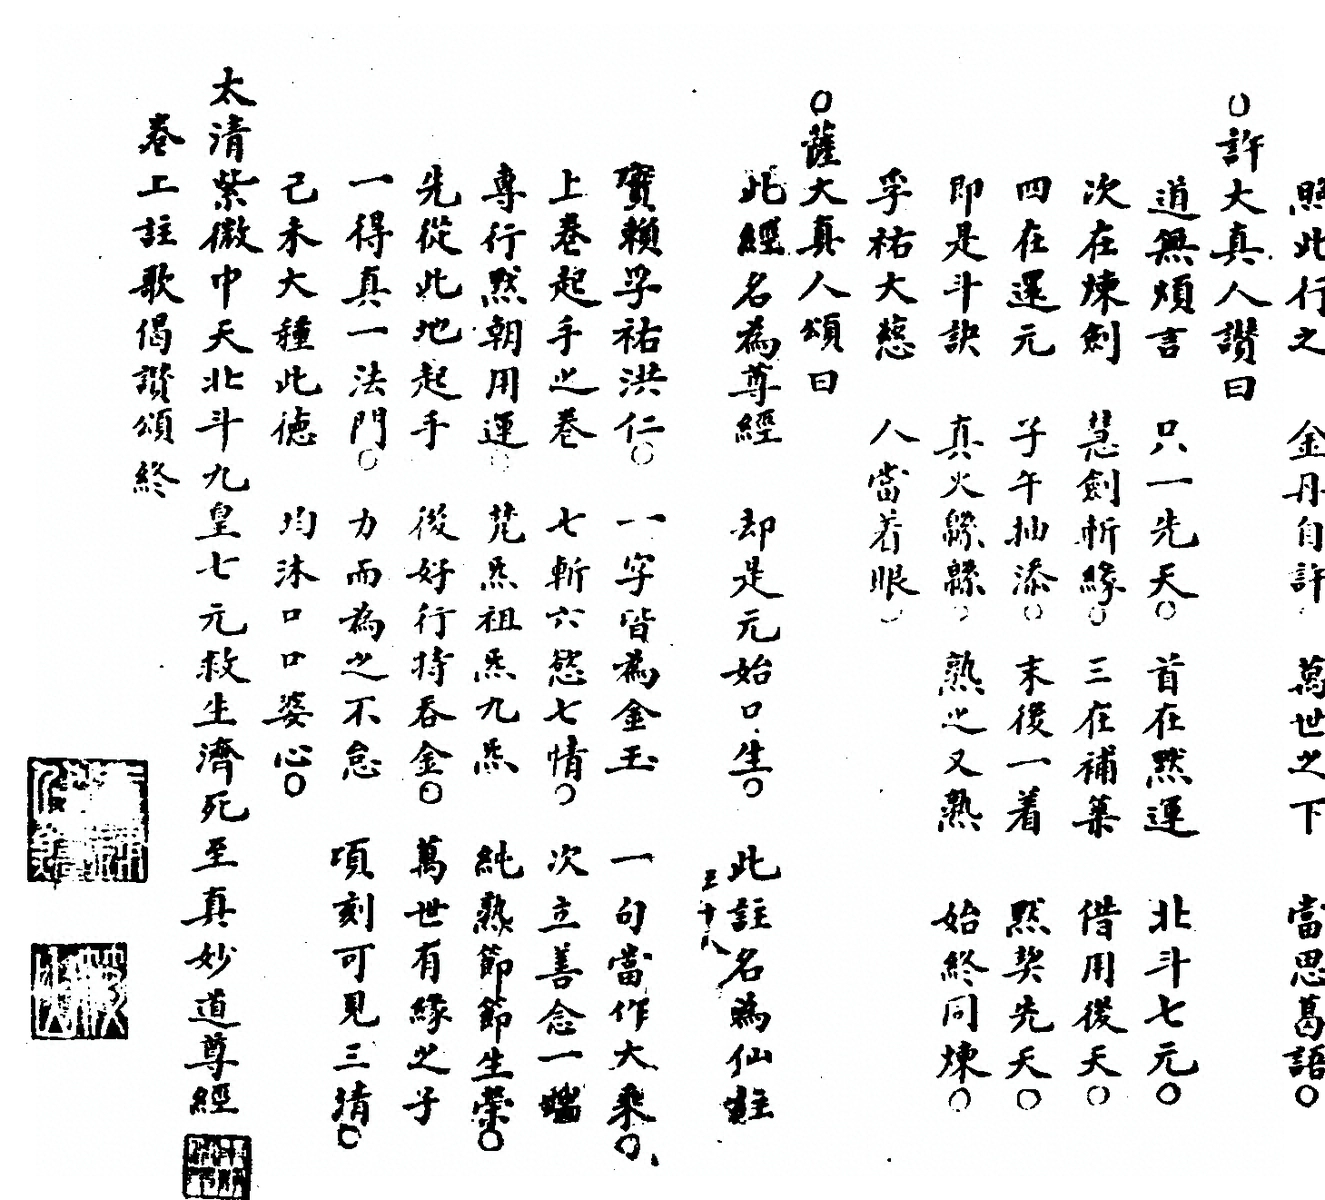 照此行之　金丹自許　萬世之下　當思葛語○
○許大真人讃曰
道無煩言　只一先天○　首在默運　北斗七元○
次在煉劍　慧劍斬緣○　三在補藥　借用後天○
四在還元　子午抽添○　末後一着　默契先天○
即是斗訣　真火緜緜○　熟之又熟　始終同煉○
孚祐大慈　人當着眼○
○薩大真人頌曰
此經名為尊經　却是元始口生○　此註名為仙註
三十八
寶賴孚祐洪仁○　一字皆為金玉　一句當作大乘○
上卷起手之卷　七斬六慾七情○　次立善念一端
專行默朝用運○　梵炁祖炁九炁　純熟節節生榮○
先從此地起手　後好行持吞金○　萬世有緣之子
一得真一法門○　力而為之不怠　項刻可見三清○
己未大種此德　均沐口口婆心○
太清紫微中天北斗九皇七元救生濟死至真妙道尊經
卷上註歌偈讃頌終